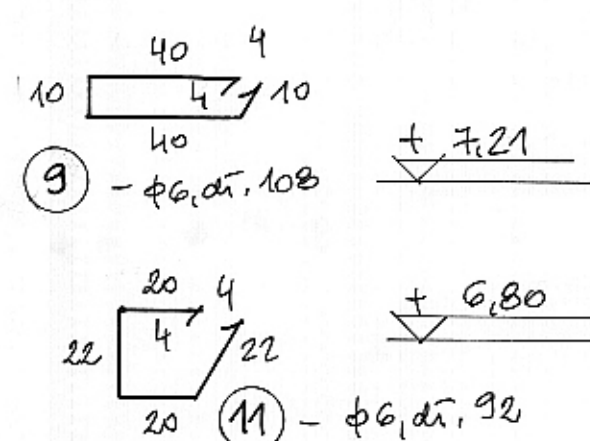 40 4
10 4 10
40
9 - ϕ6, dł. 108
+ 7,21
20 4
4
22 22
20
11 - ϕ6, dł. 92
+ 6,80